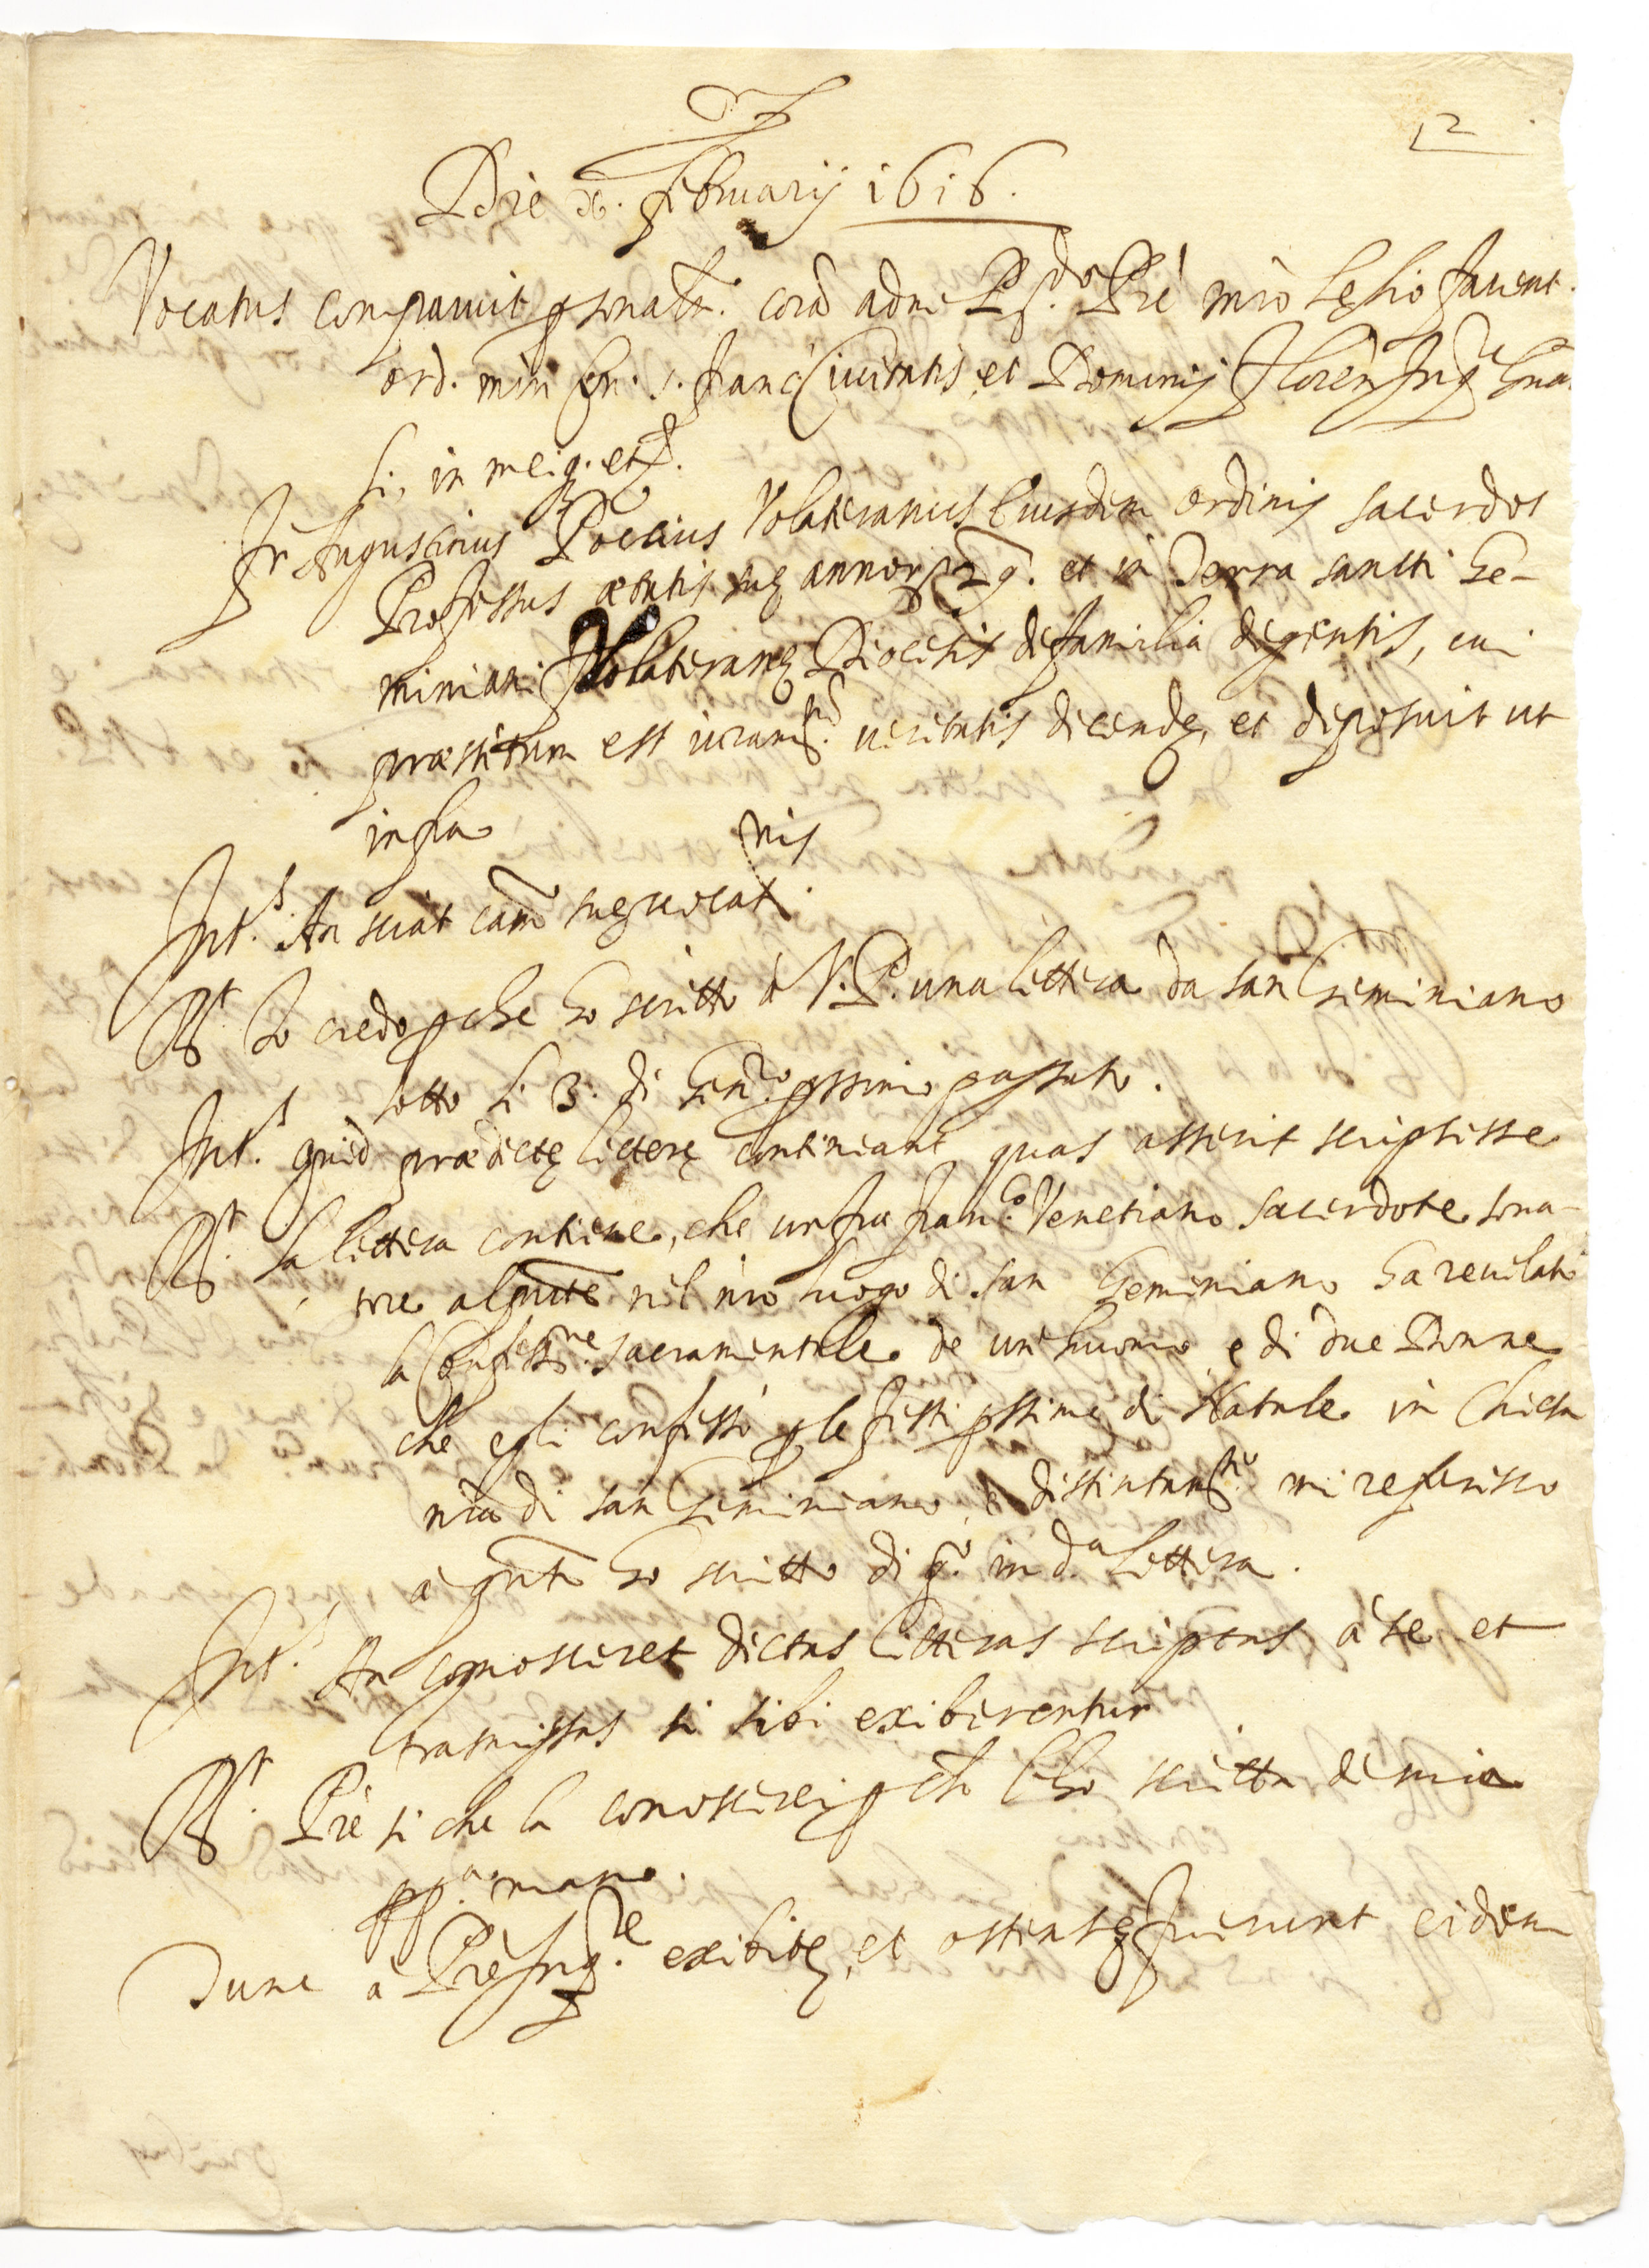 12
Die 26. februarij 1616.
Vocatus comparuit psonalr. corā adm Rdo Prē mrō Lelio favent.
ord. min con. s. franci Civitatis et Dominij Floren Inqre Gna
li, in mei q. et.
fr Augustinus Voltateranus Eiusdem ordinis sacerdos
Professus ætatis suę annor 29. et in Terra sancti Ge-
miniani Volateranę Diocesis de familia degentis, cui
præstitum est iuramto. veritatis dicendę, et deposuit ut
infra
Int.s An sciat cām suę vocat.nis
Rt. Io credo pche ho scritto à V.P. una lettera da san Geminiano
sotto li 3. di Genro. pssimo passato.
Int.s quid prædictę litterę contineant quas asserit scripsisse
Rt. la lettera contiene, che un fra franco. Venetiano sacerdote sona-
tore al pnte nel nrō luogo di san Geminiano ha revelato
la Confessne. sacramentale de un huomo e di due Donne
che egli confessò p le feste pssime di Natale in Chiesa
nrā di san Geminiano, e distintamte. mi referisco
a qnto ho scritto di qo. in da. lettera.
Int.s An cognosceret dictas litteras scriptas à se et
trasmissas si sibi exiberentur
Rt. Prē si che la conoscerei pche l'ho scritta de mia
ppa. mano.
Tunc a Prē Inqre. exibitę, et ostensę fuerunt eidem